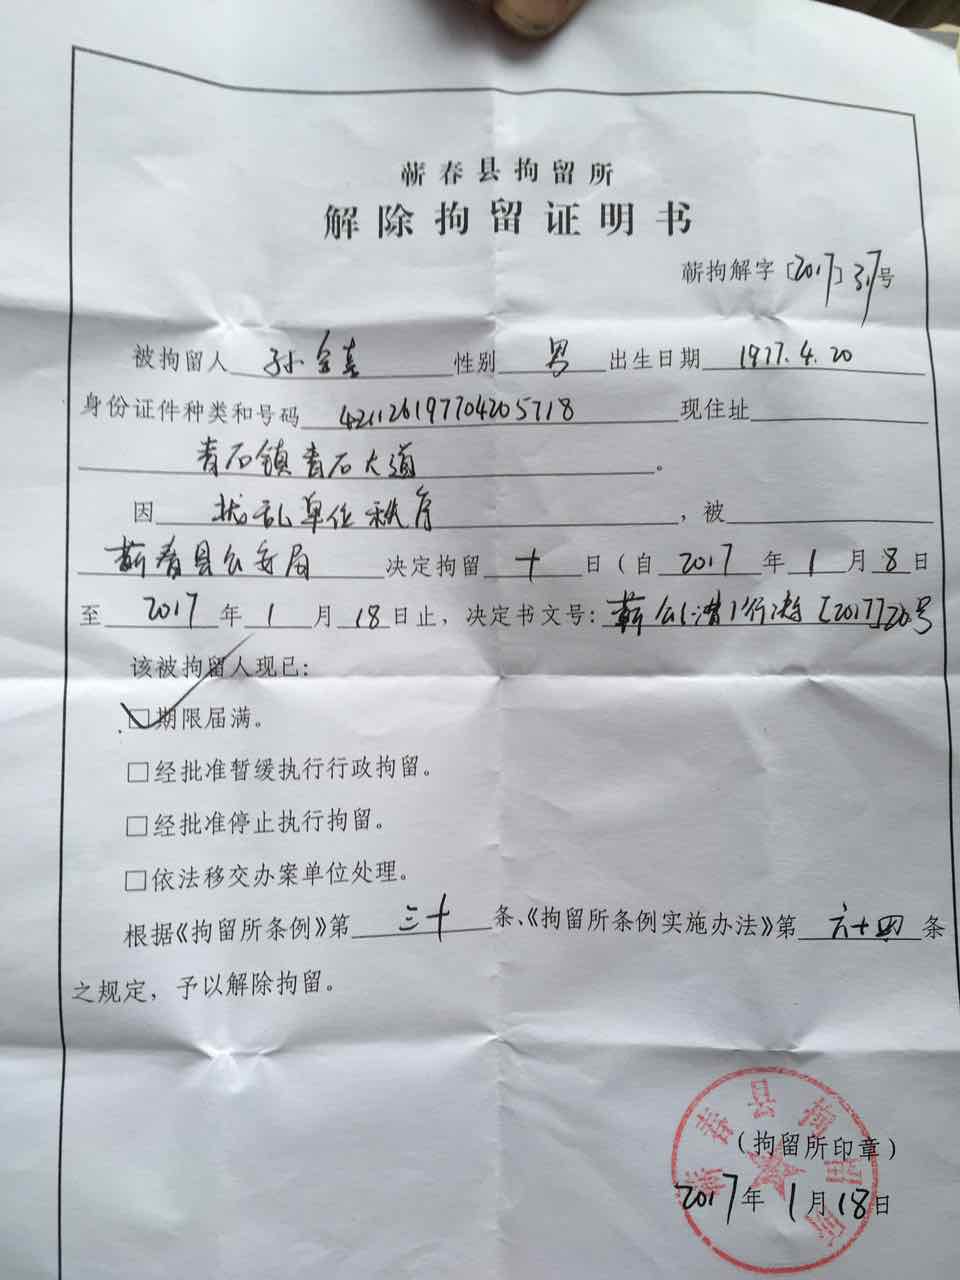 蕲春县拘留所
解除拘留证明书
蕲拘解字[2017]37号
被拘留人 孙全喜 性别 男 出生日期 1977.4.20
身份证件种类和号码 421126197704205718 现住址
青石镇青石大道。
因 扰乱单位秩序，被
蕲春县公安局 决定拘留 十 日（自 2017 年 1 月 8 日
至 2017 年 1 月 18 日止，决定书文号：蕲公(漕)行决[2017]20号
该被拘留人现已：
☑期限届满。
□经批准暂缓执行行政拘留。
□经批准停止执行拘留。
□依法移交办案单位处理。
根据《拘留所条例》第 三十 条、《拘留所条例实施办法》第 六十四 条
之规定，予以解除拘留。
蕲春县拘留所
（拘留所印章）
2017年1月18日